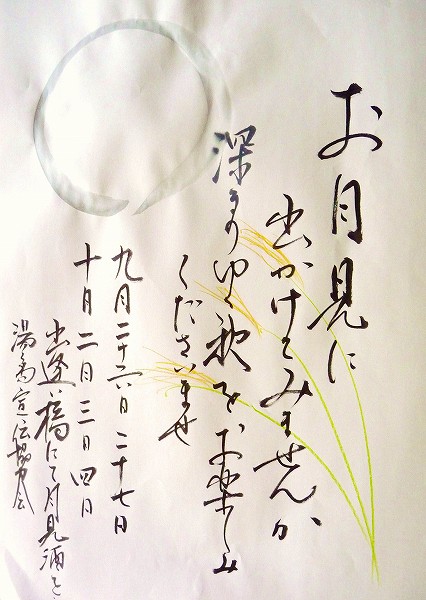 お月見に
出かけてみませんか
深まりゆく秋をお楽しみ
くださいませ
九月二十六日 二十七日
十月二日三日四日
出逢い橋にて月見酒を
湯の宣伝協力会